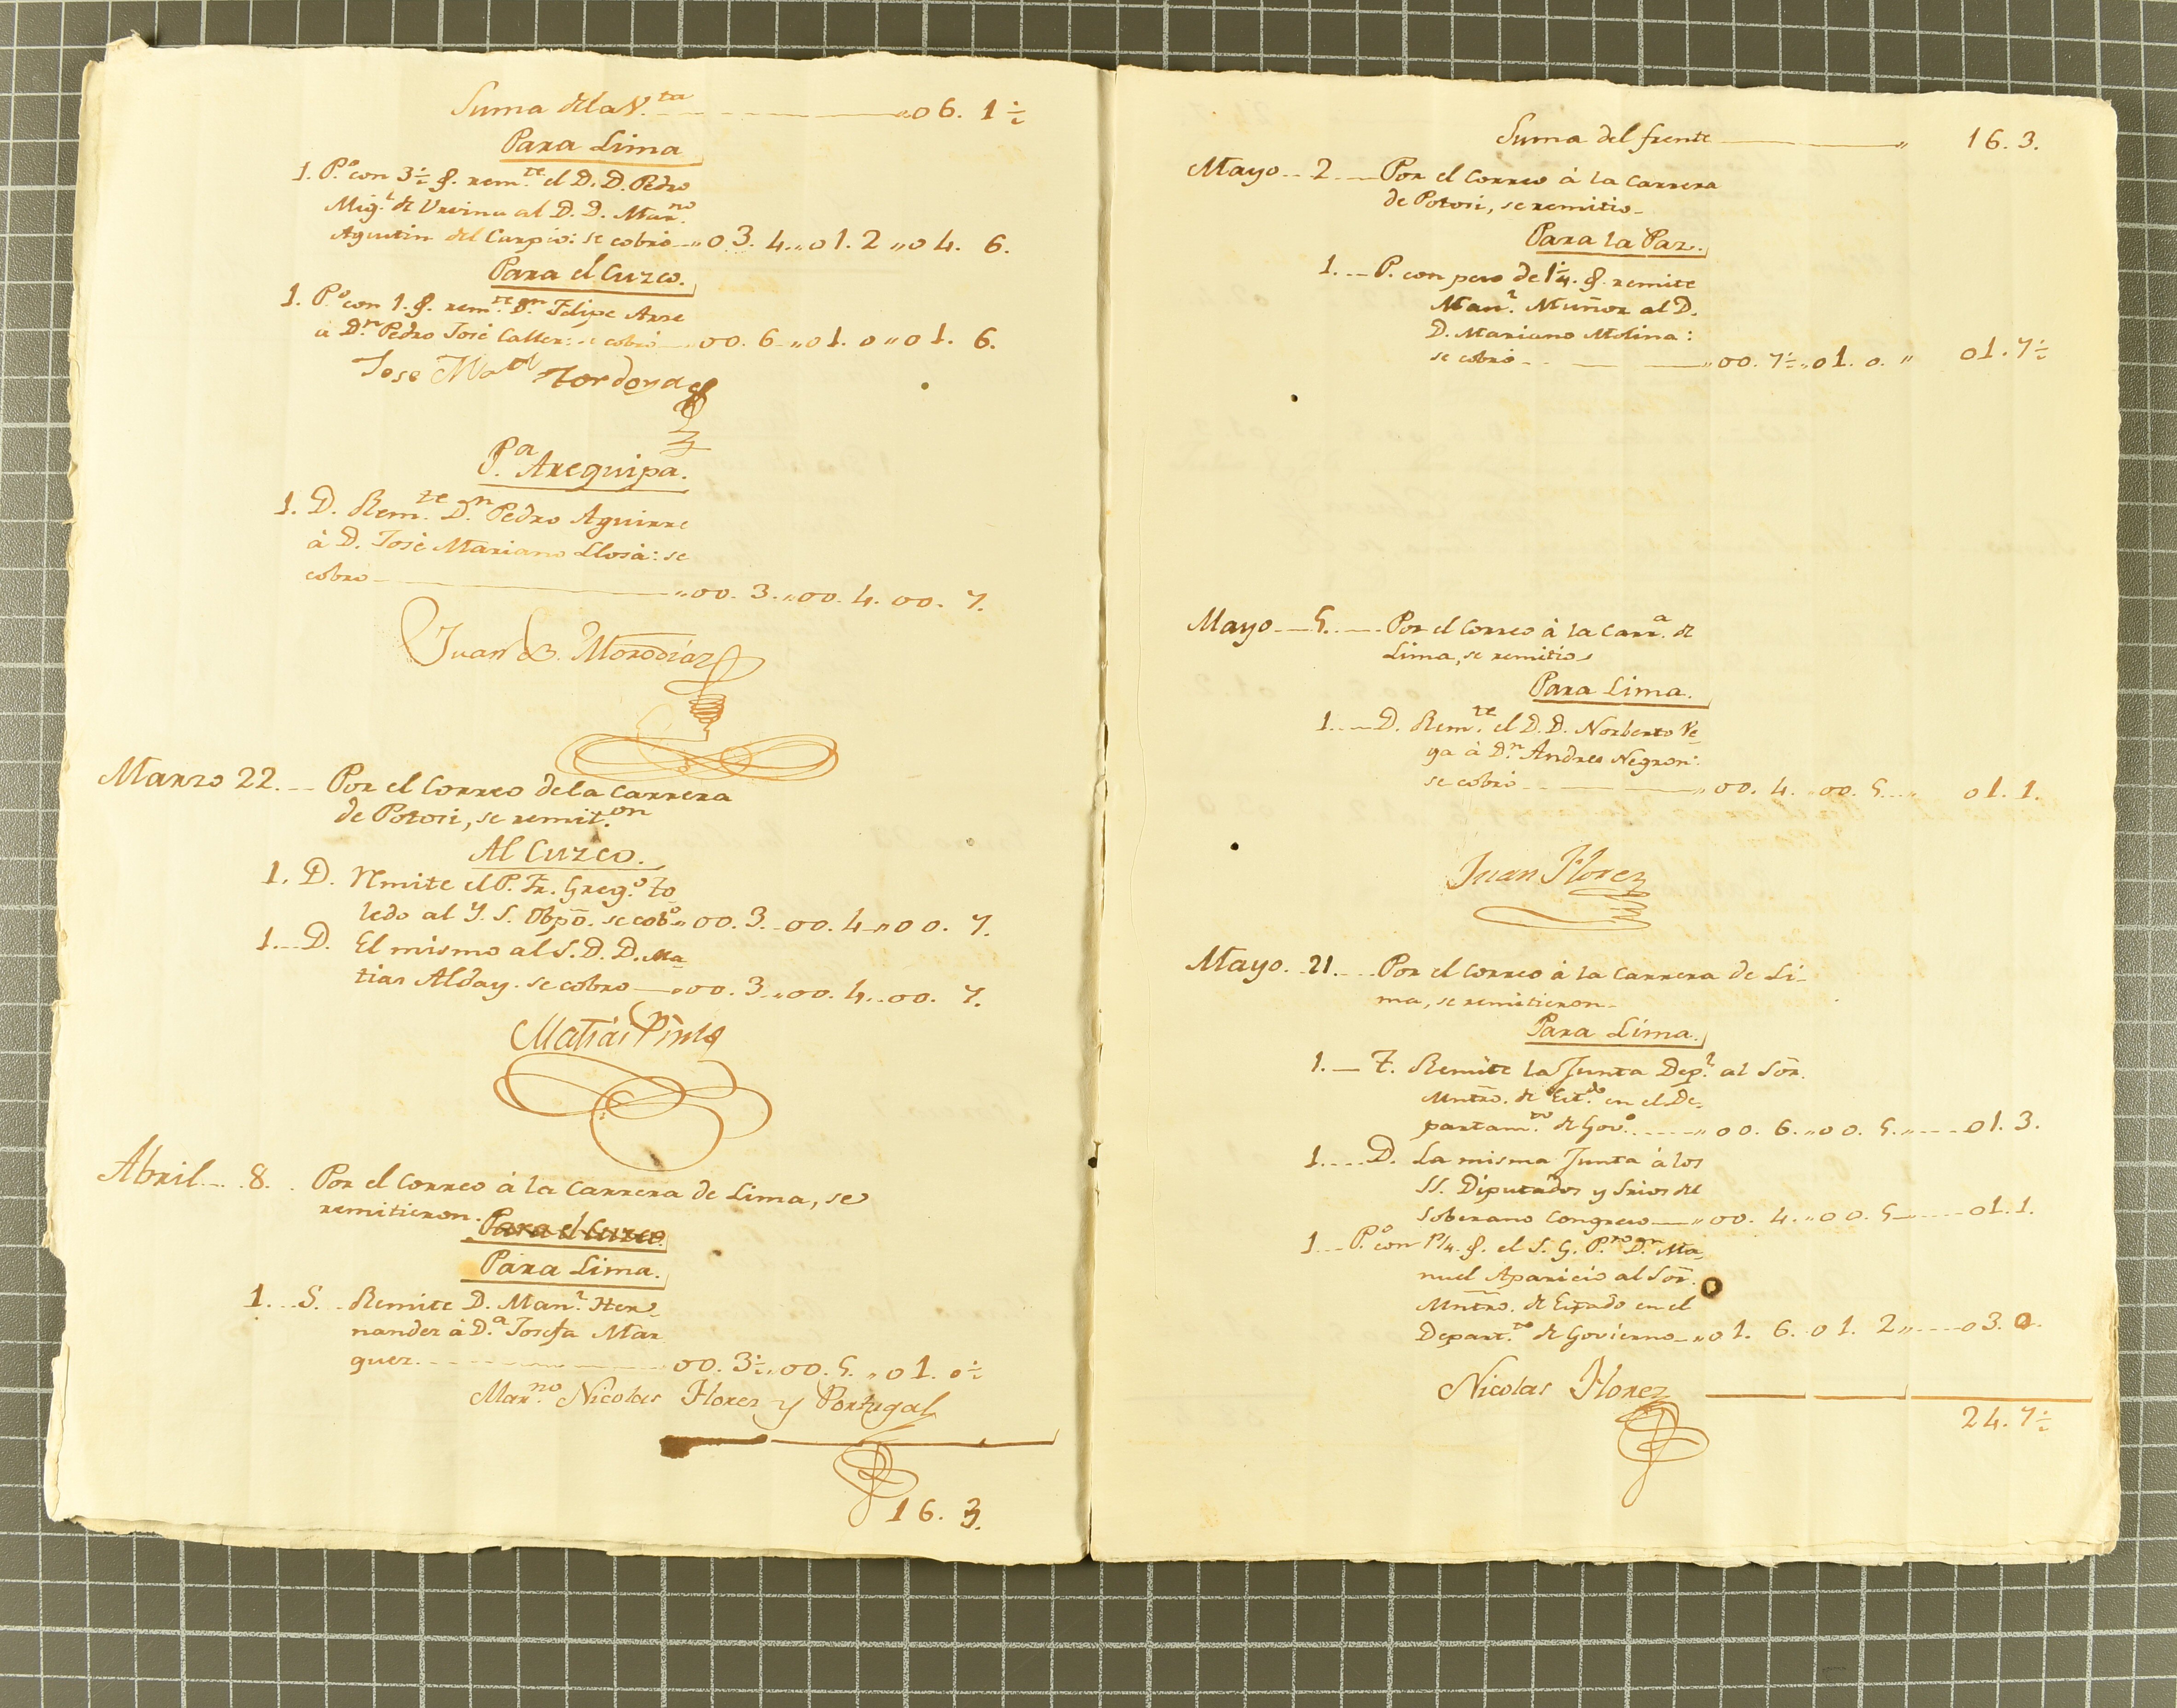 Suma dela V.ta „06. 1 ½
Para Lima
1. P.o con 3½ §. rem.te el D. D. Pedro
Mig.l de Urvina al D. D. Mar.no
Agustin del Carpio: se cobró „03. 4. „01. 2 „04. 6.
Para el Cuzco.
1. P.o con 1. §. rem.te D.n Felipe Arre
a D.n Pedro José Caller: se cobró „00. 6 „01. 0 „01. 6.
Jose M.a Tordoya
P.a Arequipa.
1. D. Rem.te D.n Pedro Aguirre
à D. José Mariano Llosa: se
cobro „00. 3. „00. 4. 00. 7.
Juan B. Morodíaz
Marzo 22. Por el Correo dela Carrera
de Potosi, se remit.on
Al Cuzco.
1. D. Remite el P. Fr. Greg.o To
ledo al Y. S. Obpõ. se cob.o „00. 3. 00. 4 „00. 7.
1. D. El mismo al S. D. D. Ma
tias Alday. se cobro „00. 3 „00. 4. 00. 7.
Matias Pinto
Abril 8. Por el Correo à la Carrera de Lima, se
remitieron.
Para el Cuzco.
Para Lima.
1. S. Remite D. Man.l Her
nandez à D.a Josefa Mar
quez. 00. 3½ „00. 5. „01. 0½
Mar.no Nicolas Florez y Portugal
16. 3.
Suma del frente „ 16. 3.
Mayo 2 Por el Correo à la Carrera
de Potosi, se remitio
Para la Paz.
1. P. con peso de 1¼. §. remite
Man.l Muñoz al D.
D. Mariano Molina:
se cobró „00. 7½ „01. 0. „ 01. 7½
Mayo 5. Por el Correo à la Carr.a de
Lima, se remitio
Para Lima.
1. D. Rem.te el D. D. Norberto Ve
ga à D.n Andres Negron:
se cobró „00. 4. 00. 5. „ 01. 1.
Juan Florez
Mayo. 21. Por el Correo à la Carrera de Li
ma, se remitieron
Para Lima.
1. T. Remite la Junta Dep.l al Sor̃.
Mntrõ. de Est.do en el De
partam.to de Gov.o „00. 6. „00. 5. „ 01. 3.
1. D. La misma Junta à los
SS. Diputados y Srios del
Soberano Congreso „00. 4. „00. 5 01. 1.
1. P.o con 1¾. §. el S. G. P.ro D.n Ma
nuel Aparicio al Sor̃.
Mntrõ. de Estado en el
Depart.to de Govierno „01. 6. 01. 2 „ 03. 0.
Nicolas Florez
24. 7½